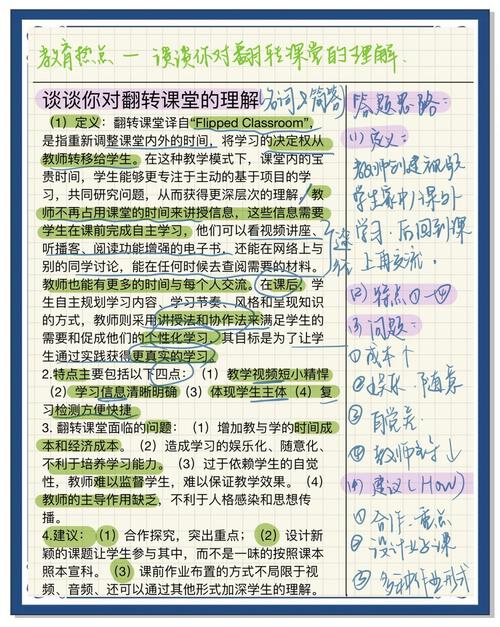 教育热点 — 谈谈你对翻转课堂的理解.
谈谈你对翻转课堂的理解
名词 简答
(1) 定义：翻转课堂译自“Flipped Classroom”，
是指重新调整课堂内外的时间，将学习的决定权从
教师转移给学生。在这种教学模式下，课堂内的宝
贵时间，学生能够更专注于主动的基于项目的学
习，共同研究问题，从而获得更深层次的理解。教
师不再占用课堂的时间来讲授信息，这些信息需要
学生在课前完成自主学习，他们可以看视频讲座、
听播客、阅读功能增强的电子书，还能在网络上与
别的同学讨论，能在任何时候去查阅需要的材料。
教师也能有更多的时间与每个人交流。在课后，学
生自主规划学习内容、学习节奏、风格和呈现知识
的方式，教师则采用讲授法和协作法来满足学生的
需要和促成他们的个性化学习，其目标是为了让学
生通过实践获得更真实的学习。
2.特点主要包括以下四点：(1) 教学视频短小精悍
(2) 学习信息清晰明确 (3) 体现学生主体 (4) 复
习检测方便快捷
3. 翻转课堂面临的问题：(1) 增加教与学的时间成
本和经济成本。(2) 造成学习的娱乐化、随意化、
不利于培养学习能力。(3) 过于依赖学生的自觉
性，教师难以监督学生，难以保证教学效果。(4)
教师的主导作用缺乏，不利于人格感染和思想传
播。
4.建议：(1) 合作探究，突出重点；(2) 设计新
颖的课题让学生参与其中，而不是一味的按照课本
照本宣科。(3) 课前作业布置的方式不局限于视
频、音频、还可以通过其他形式加深学生的理解。
途径
答题思路：
(1) 定义：
教师创建视频
学生家中/课外
学习. 后回到课
上再交流.
(2) 特点 ①—④
(3) 问题：
① 成本↑
② 娱乐、随意
③ 自觉
④ 教师主导↓
(4) 建议 (How)
① 合作. 重点
② 设计
③ 多种作业形式